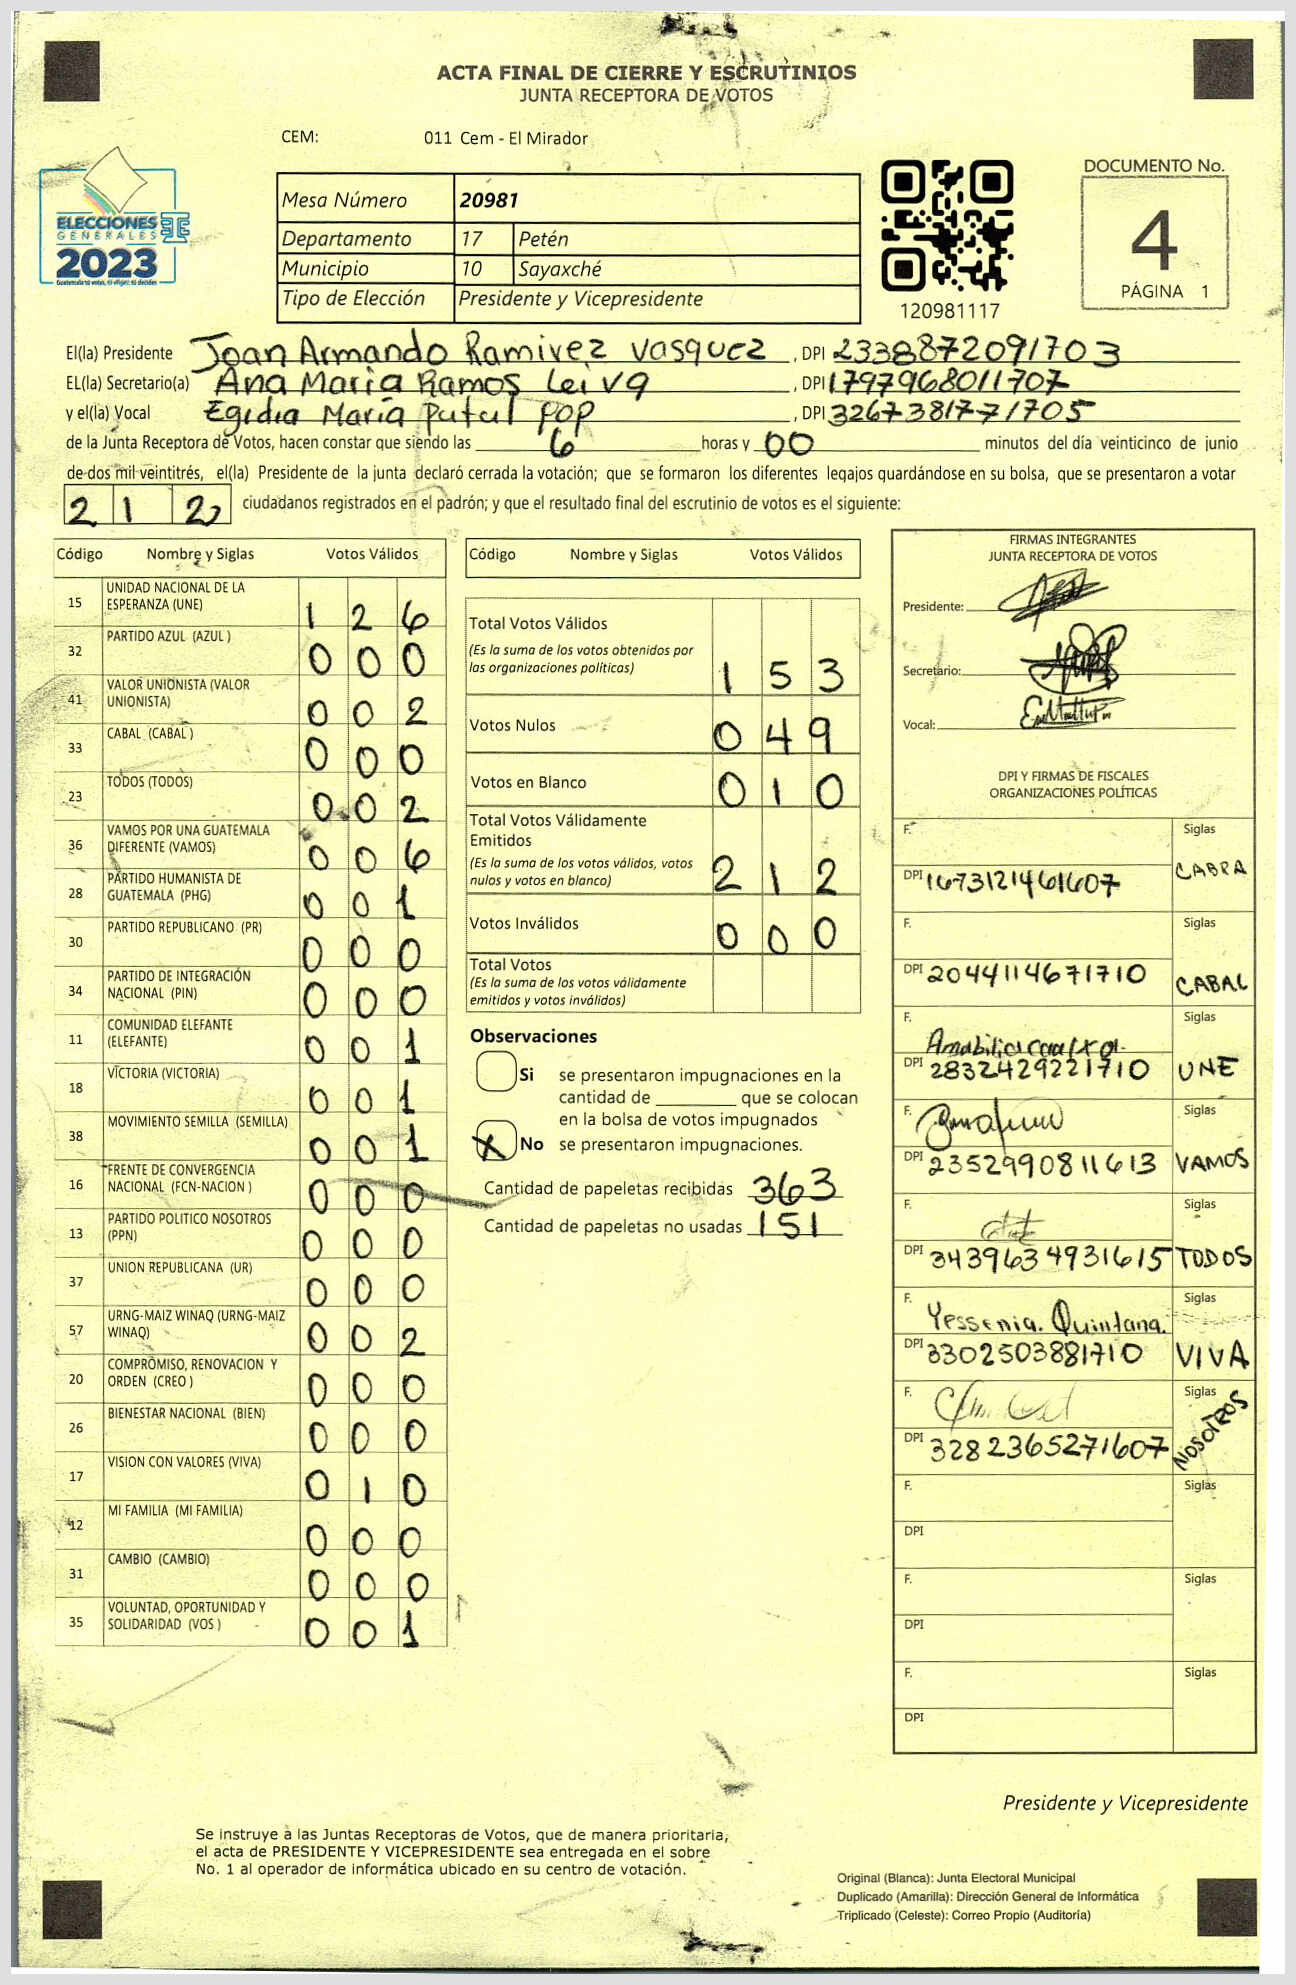 ACTA FINAL DE CIERRE Y ESCRUTINIOS
JUNTA RECEPTORA DE VOTOS
CEM: 011 Cem - El Mirador
ELECCIONES
GENERALES
2023
Guatemala tú votas, tú eliges, tú decides
Mesa Número 20981
Departamento 17 Petén
Municipio 10 Sayaxché
Tipo de Elección Presidente y Vicepresidente
120981117
DOCUMENTO No.
4
PÁGINA 1
El(la) Presidente Joan Armando Ramirez vasquez , DPI 2338872091703
EL(la) Secretario(a) Ana Maria Ramos Leiva , DPI 1797968011707
y el(la) Vocal Egidia María Putul pop , DPI 3267381771705
de la Junta Receptora de Votos, hacen constar que siendo las 6 horas y 00 minutos del día veinticinco de junio
de dos mil veintitrés, el(la) Presidente de la junta declaró cerrada la votación; que se formaron los diferentes legajos guardándose en su bolsa, que se presentaron a votar
212 ciudadanos registrados en el padrón; y que el resultado final del escrutinio de votos es el siguiente:
Código Nombre y Siglas Votos Válidos
15 UNIDAD NACIONAL DE LA
ESPERANZA (UNE) 1 2 6
32 PARTIDO AZUL (AZUL ) 0 0 0
41 VALOR UNIONISTA (VALOR
UNIONISTA) 0 0 2
33 CABAL (CABAL ) 0 0 0
23 TODOS (TODOS) 0 0 2
36 VAMOS POR UNA GUATEMALA
DIFERENTE (VAMOS) 0 0 6
28 PARTIDO HUMANISTA DE
GUATEMALA (PHG) 0 0 1
30 PARTIDO REPUBLICANO (PR) 0 0 0
34 PARTIDO DE INTEGRACIÓN
NACIONAL (PIN) 0 0 0
11 COMUNIDAD ELEFANTE
(ELEFANTE) 0 0 1
18 VICTORIA (VICTORIA) 0 0 1
38 MOVIMIENTO SEMILLA (SEMILLA) 0 0 1
16 FRENTE DE CONVERGENCIA
NACIONAL (FCN-NACION ) 0 0 0
13 PARTIDO POLITICO NOSOTROS
(PPN) 0 0 0
37 UNION REPUBLICANA (UR) 0 0 0
57 URNG-MAIZ WINAQ (URNG-MAIZ
WINAQ) 0 0 2
20 COMPROMISO, RENOVACION Y
ORDEN (CREO ) 0 0 0
26 BIENESTAR NACIONAL (BIEN) 0 0 0
17 VISION CON VALORES (VIVA) 0 1 0
12 MI FAMILIA (MI FAMILIA) 0 0 0
31 CAMBIO (CAMBIO) 0 0 0
35 VOLUNTAD, OPORTUNIDAD Y
SOLIDARIDAD (VOS ) 0 0 1
Código Nombre y Siglas Votos Válidos
Total Votos Válidos
(Es la suma de los votos obtenidos por
las organizaciones políticas) 1 5 3
Votos Nulos 0 4 9
Votos en Blanco 0 1 0
Total Votos Válidamente
Emitidos
(Es la suma de los votos válidos, votos
nulos y votos en blanco) 2 1 2
Votos Inválidos 0 0 0
Total Votos
(Es la suma de los votos válidamente
emitidos y votos inválidos)
Observaciones
Si se presentaron impugnaciones en la
cantidad de ________ que se colocan
en la bolsa de votos impugnados
X No se presentaron impugnaciones.
Cantidad de papeletas recibidas 363
Cantidad de papeletas no usadas 151
FIRMAS INTEGRANTES
JUNTA RECEPTORA DE VOTOS
Presidente:
Secretario:
Vocal:
DPI Y FIRMAS DE FISCALES
ORGANIZACIONES POLÍTICAS
F. Siglas
DPI 1673121461607 CABRA
F. Siglas
DPI 2044114671710 CABAL
F. Amabilia Siglas
DPI 2832429221710 UNE
F. Siglas
DPI 2352990811613 VAMOS
F. Siglas
DPI 3439634931615 TODOS
F. Yessenia. Quintana. Siglas
DPI 3302503881710 VIVA
F. Siglas
DPI 3282365271607 NOSOTROS
F. Siglas
DPI
F. Siglas
DPI
F. Siglas
DPI
Presidente y Vicepresidente
Se instruye a las Juntas Receptoras de Votos, que de manera prioritaria,
el acta de PRESIDENTE Y VICEPRESIDENTE sea entregada en el sobre
No. 1 al operador de informática ubicado en su centro de votación.
Original (Blanca): Junta Electoral Municipal
Duplicado (Amarilla): Dirección General de Informática
Triplicado (Celeste): Correo Propio (Auditoría)